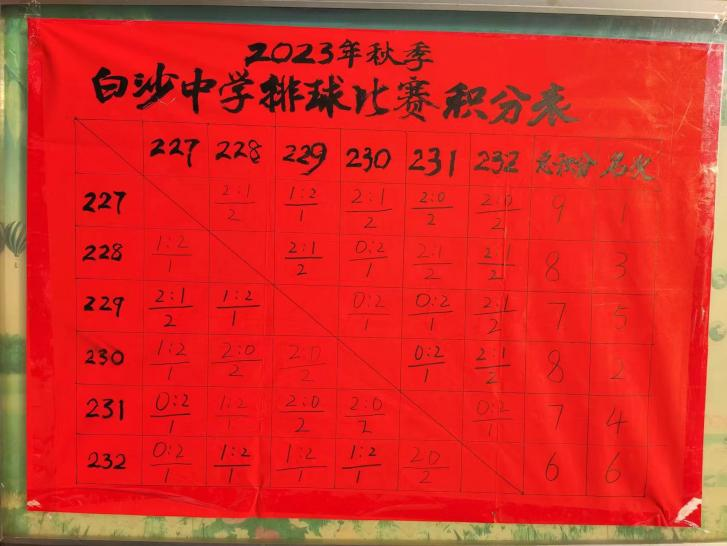 2023年秋季
白沙中学排球比赛积分表
227 228 229 230 231 232 总积分 名次
227 2:1/2 1:2/1 2:1/2 2:0/2 2:0/2 9 1
228 1:2/1 2:1/2 0:2/1 2:1/2 2:1/2 8 3
229 2:1/2 1:2/1 0:2/1 0:2/1 2:1/2 7 5
230 1:2/1 2:0/2 2:0/2 0:2/1 2:1/2 8 2
231 0:2/1 1:2/1 2:0/2 2:0/2 0:2/1 7 4
232 0:2/1 1:2/1 1:2/1 1:2/1 2:0/2 6 6